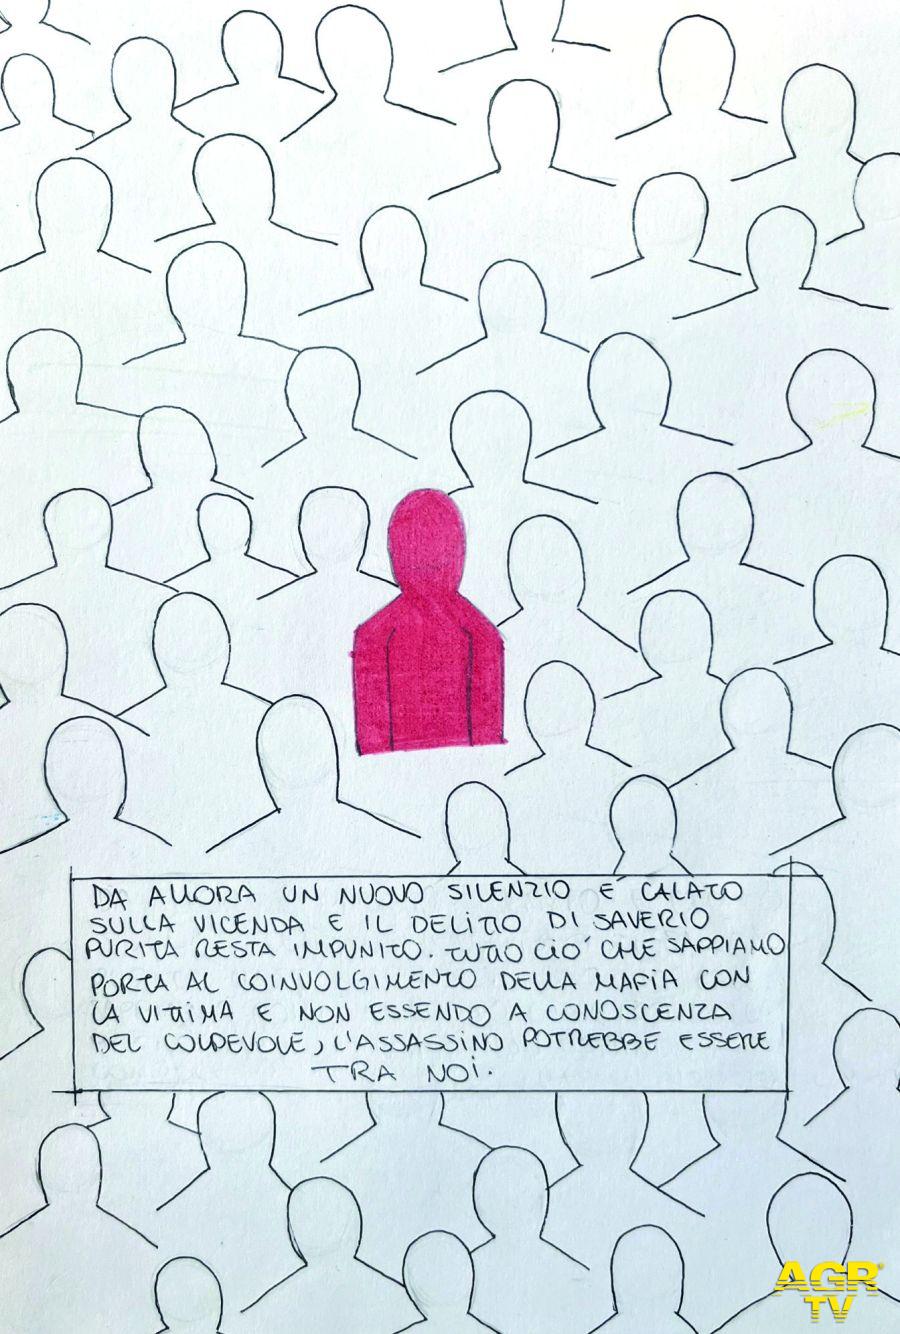 DA ALLORA UN NUOVO SILENZIO E CALATO
SULLA VICENDA E IL DELITTO DI SAVERIO
PURITA RESTA IMPUNITO. TUTTO CIÒ CHE SAPPIAMO
PORTA AL COINVOLGIMENTO DELLA MAFIA CON
LA VITTIMA E NON ESSENDO A CONOSCENZA
DEL COLPEVOLE, L'ASSASSINO POTREBBE ESSERE
TRA NOI.
AGR
TV